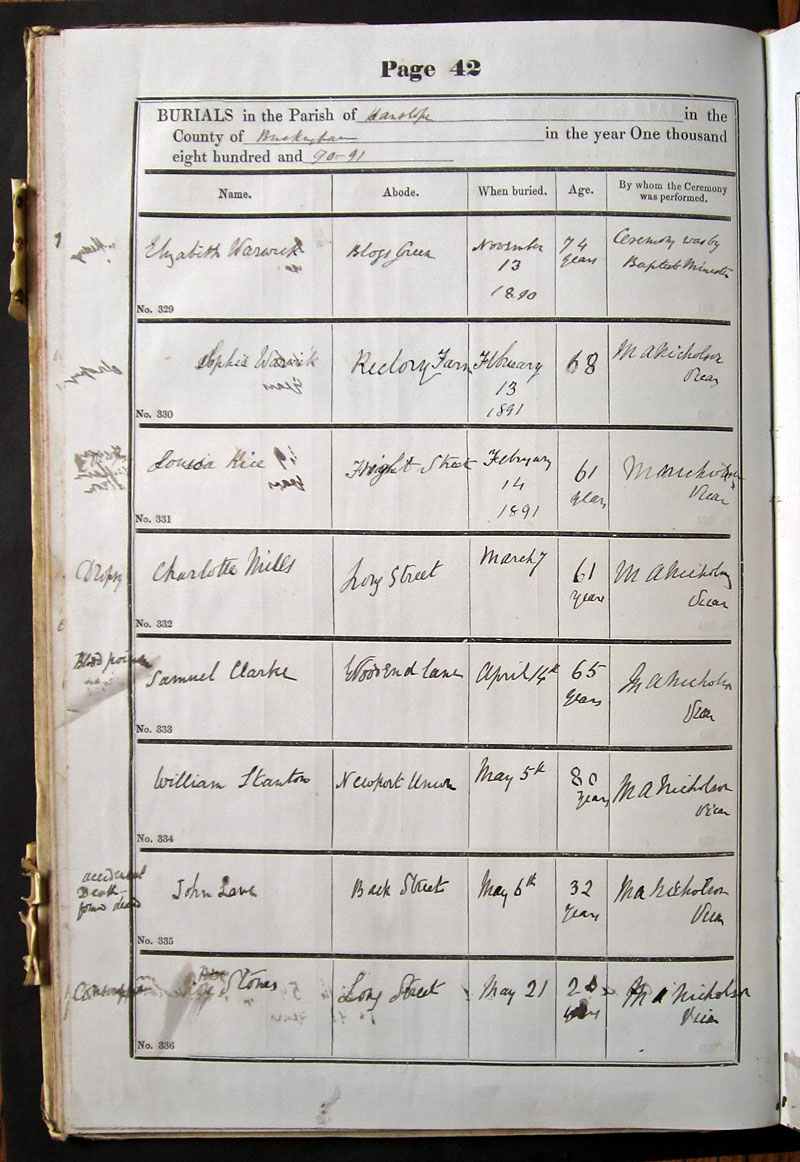 Page 42
BURIALS in the Parish of Hanslope in the
County of Buckingham in the year One thousand
eight hundred and 90-91
Name. Abode. When buried. Age. By whom the Ceremony was performed.
Elizabeth Warwick Blogs Green November 13 1890 74 years Ceremony was by Baptist Minister
No. 329
Sophia Warwick Rectory Farm February 13 1891 68 M A Nicholson Vicar
No. 330
Louisa Rice Street February 14 1891 61 years M A Nicholson Vicar
No. 331
Dropsy Charlotte Mills Long Street March 7 61 years M A Nicholson Vicar
No. 332
Blood poison Samuel Clarke Woodend Lane April 14th 65 years M A Nicholson Vicar
No. 333
William Stanton Newport Union May 5th 80 years M A Nicholson Vicar
No. 334
accidental
Death
found dead John Lane Back Street May 6th 32 years M A Nicholson Vicar
No. 335
Consumption Stones Long Street May 21 years M A Nicholson Vicar
No. 336